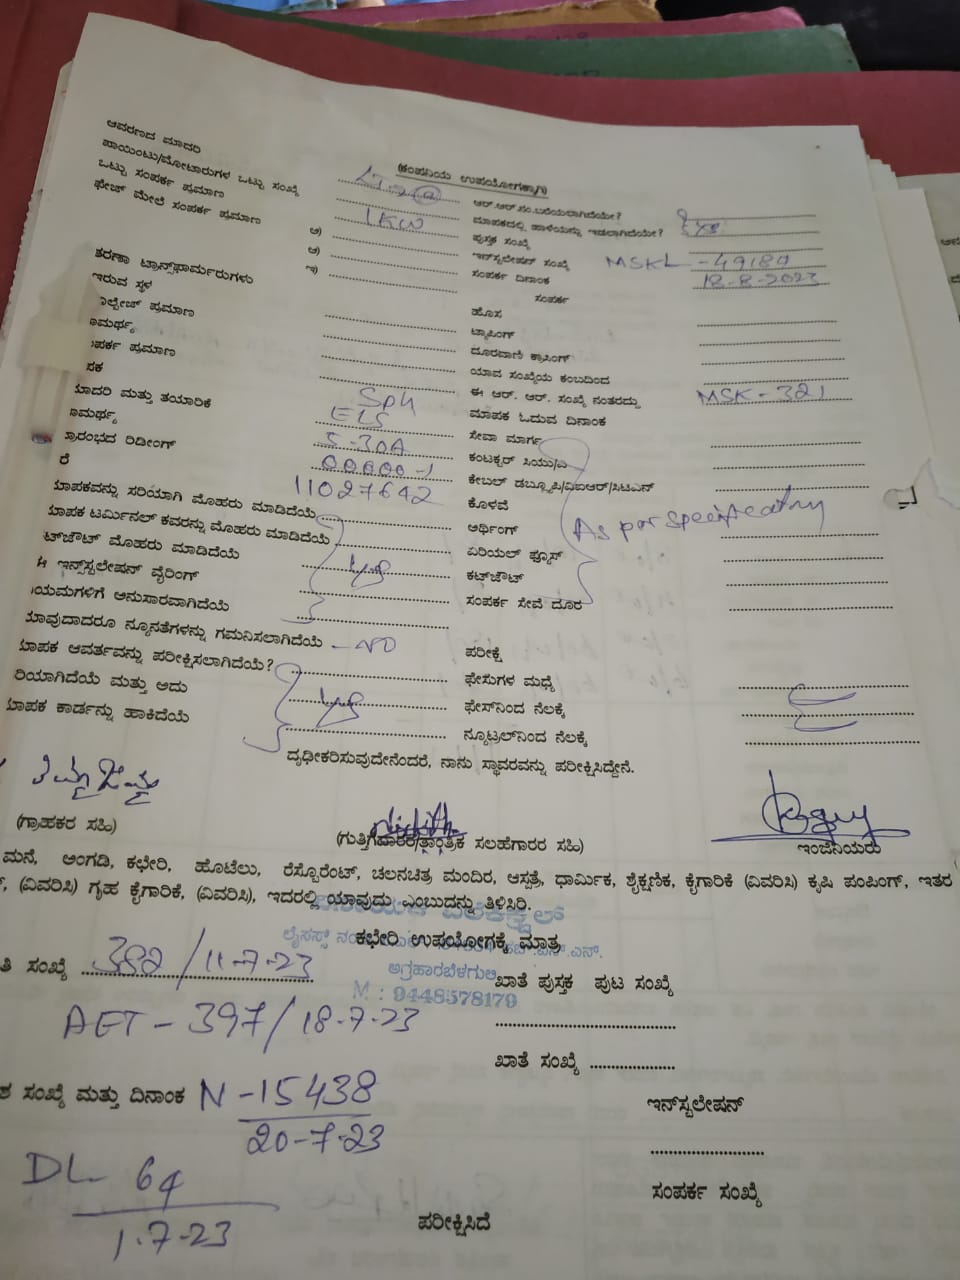 (ಕಂಪನಿಯ ಉಪಯೋಗಕ್ಕಾಗಿ)
ಆವರಣದ ಮಾದರಿ LT-2
ಪಾಯಿಂಟು/ಮೋಟಾರುಗಳ ಒಟ್ಟು ಸಂಖ್ಯೆ
ಒಟ್ಟು ಸಂಪರ್ಕ ಪ್ರಮಾಣ 1KW
ಫೇಜ್ ಮೇಲೆ ಸಂಪರ್ಕ ಪ್ರಮಾಣ ಅ)
ಆ)
ಇ)
ತರಣಾ ಟ್ರಾನ್ಸ್‌ಫಾರ್ಮರುಗಳು
ಇರುವ ಸ್ಥಳ
ೋಲ್ಟೇಜ್ ಪ್ರಮಾಣ
ಾಮರ್ಥ್ಯ
ಂಪರ್ಕ ಪ್ರಮಾಣ
ಪಕ
ಾದರಿ ಮತ್ತು ತಯಾರಿಕೆ Sph
ELS
ಾಮರ್ಥ್ಯ 5-30A
್ರಾರಂಭದ ರಿಡೀಂಗ್ 00000-1
ರೆ 11027642
ಾಪಕವನ್ನು ಸರಿಯಾಗಿ ಮೊಹರು ಮಾಡಿದೆಯೆ
ಾಪಕ ಟರ್ಮಿನಲ್ ಕವರನ್ನು ಮೊಹರು ಮಾಡಿದೆಯೆ
ಟ್‌ಔಟ್ ಮೊಹರು ಮಾಡಿದೆಯೆ yes
ಇನ್‌ಸ್ಟಲೇಷನ್ ವೈರಿಂಗ್
ಿಯಮಗಳಿಗೆ ಅನುಸಾರವಾಗಿದೆಯೆ
ಾವುದಾದರೂ ನ್ಯೂನತೆಗಳನ್ನು ಗಮನಿಸಲಾಗಿದೆಯೆ - NO
ಾಪಕ ಆವರ್ತವನ್ನು ಪರೀಕ್ಷಿಸಲಾಗಿದೆಯೆ?
ರಿಯಾಗಿದೆಯೆ ಮತ್ತು ಅದು yes
ಾಪಕ ಕಾರ್ಡನ್ನು ಹಾಕಿದೆಯೆ
ಆರ್.ಆರ್.ನಂ.ಬರೆಯಲಾಗಿದೆಯೇ?
ಮಾಪಕದಲ್ಲಿ ಹಾಳೆಯನ್ನು ಇಡಲಾಗಿದೆಯೇ? yes
ಪುಸ್ತಕ ಸಂಖ್ಯೆ
ಇನ್‌ಸ್ಟಲೇಷನ್ ಸಂಖ್ಯೆ MSKL-49180
ಸಂಪರ್ಕ ದಿನಾಂಕ 18-8-2023
ಸಂಪರ್ಕ
ಹೊಸ
ಟ್ಯಾಪಿಂಗ್
ದೂರವಾಣಿ ಕ್ರಾಸಿಂಗ್
ಯಾವ ಸಂಖ್ಯೆಯ ಕಂಬದಿಂದ
ಈ ಆರ್. ಆರ್. ಸಂಖ್ಯೆ ನಂತರದ್ದು MSK-321
ಮಾಪಕ ಓದುವ ದಿನಾಂಕ
ಸೇವಾ ಮಾರ್ಗ
ಕಂಟಕ್ಟರ್ ಸಿಯು/ಎ
ಕೇಬಲ್ ಡಬ್ಲ್ಯೂಪಿ/ವಿಐಆರ್/ಸಿಟಿಎಸ್
ಕೊಳವೆ
ಅರ್ಥಿಂಗ್ As per specification
ಏರಿಯಲ್ ಫ್ಯೂಸ್
ಕಟ್‌ಔಟ್
ಸಂಪರ್ಕ ಸೇವೆ ದೂರ
ಪರೀಕ್ಷೆ
ಫೇಸುಗಳ ಮಧ್ಯೆ
ಫೇಸ್‌ನಿಂದ ನೆಲಕ್ಕೆ
ನ್ಯೂಟ್ರಲ್‌ನಿಂದ ನೆಲಕ್ಕೆ
ದೃಢೀಕರಿಸುವುದೇನೆಂದರೆ, ನಾನು ಸ್ಥಾವರವನ್ನು ಪರೀಕ್ಷಿಸಿದ್ದೇನೆ.
(ಗ್ರಾಹಕರ ಸಹಿ) (ಗುತ್ತಿಗೆದಾರರ/ತಾಂತ್ರಿಕ ಸಲಹೆಗಾರರ ಸಹಿ) ಇಂಜಿನಿಯರು
ಮನೆ, ಅಂಗಡಿ, ಕಛೇರಿ, ಹೊಟೆಲು, ರೆಸ್ಟೊರೆಂಟ್, ಚಲನಚಿತ್ರ ಮಂದಿರ, ಆಸ್ಪತ್ರೆ, ಧಾರ್ಮಿಕ, ಶೈಕ್ಷಣಿಕ, ಕೈಗಾರಿಕೆ (ವಿವರಿಸಿ) ಕೃಷಿ ಪಂಪಿಂಗ್, ಇತರ
(ವಿವರಿಸಿ) ಗೃಹ ಕೈಗಾರಿಕೆ, (ವಿವರಿಸಿ), ಇದರಲ್ಲಿ ಯಾವುದು ಎಂಬುದನ್ನು ತಿಳಿಸಿರಿ.
ಕಛೇರಿ ಉಪಯೋಗಕ್ಕೆ ಮಾತ್ರ
ಅಗ್ರಹಾರಬೆಳಗುಲಿ
M : 9448578179
ತಿ ಸಂಖ್ಯೆ 382/11-7-23
ಖಾತೆ ಪುಸ್ತಕ ಪುಟ ಸಂಖ್ಯೆ
AET-397/18-7-23
ಖಾತೆ ಸಂಖ್ಯೆ
ಶ ಸಂಖ್ಯೆ ಮತ್ತು ದಿನಾಂಕ N-15438
20-7-23
ಇನ್‌ಸ್ಟಲೇಷನ್
DL 64
1-7-23
ಸಂಪರ್ಕ ಸಂಖ್ಯೆ
ಪರೀಕ್ಷಿಸಿದೆ